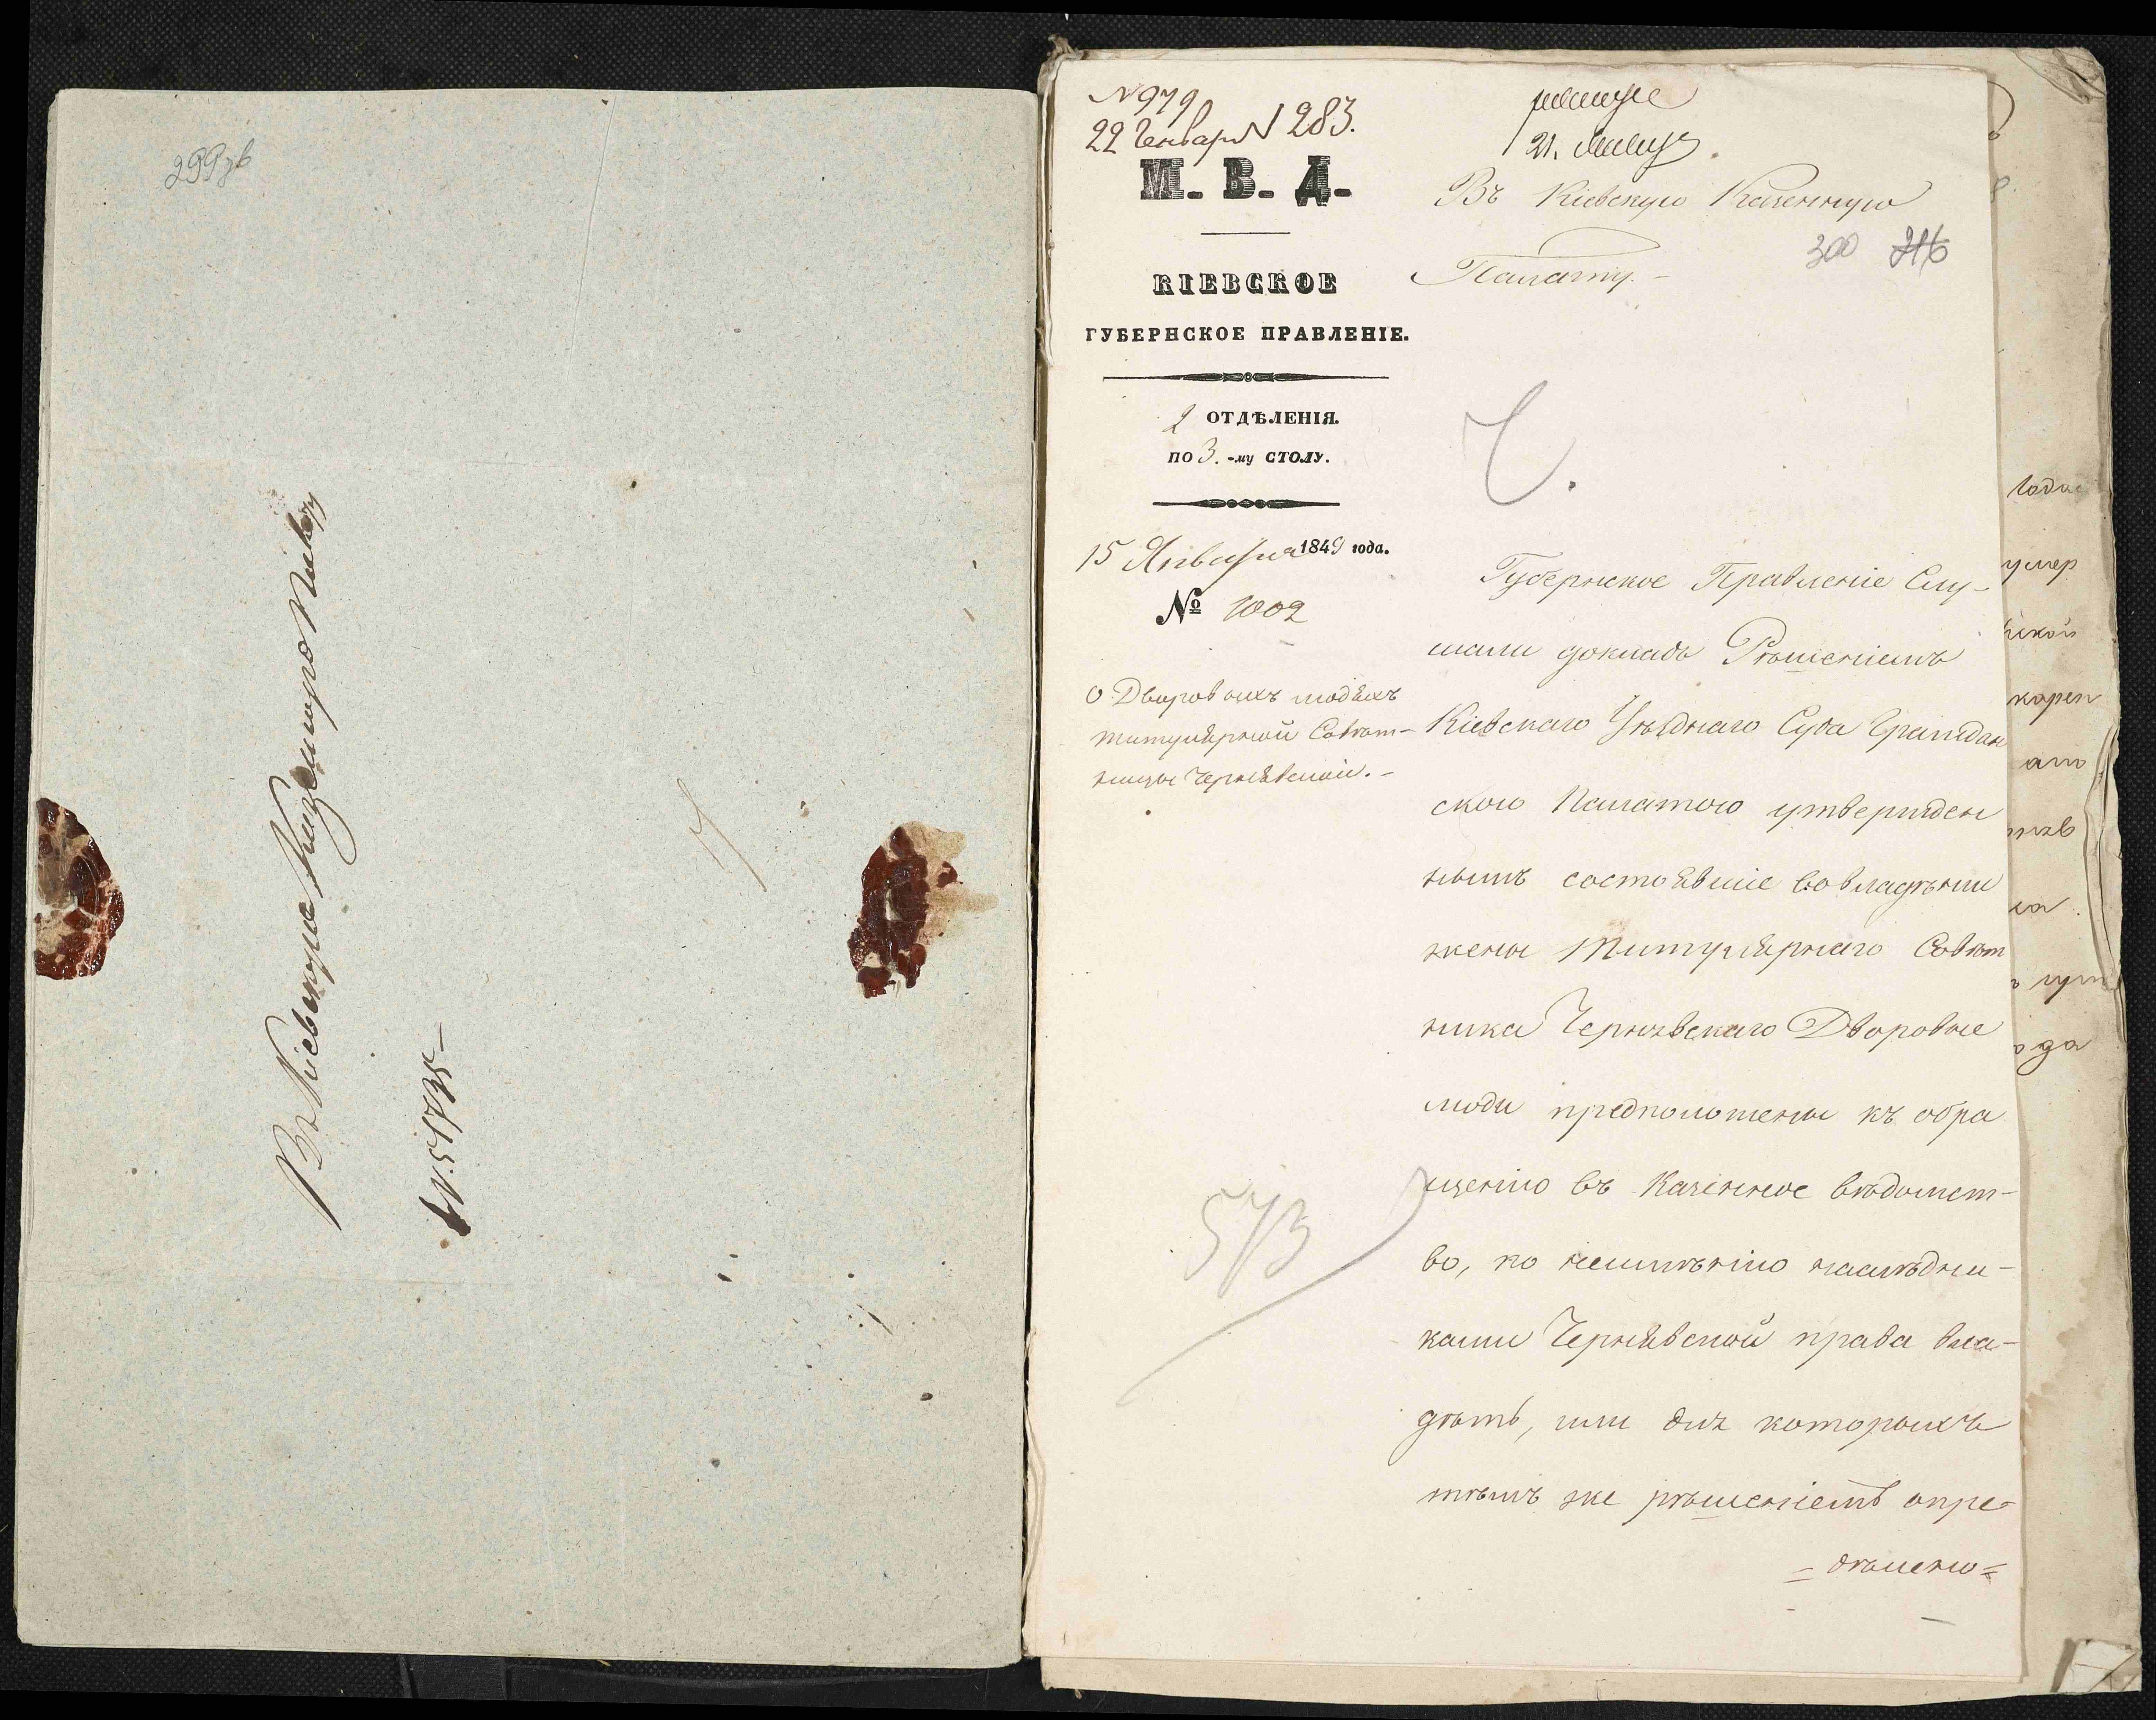 299 зв
Въ Кіевскую Казенную Палату
N. 51735
N 979
22 Генваря N 283.
21.
М. В. Д.
КІЕВСКОЕ
ГУБЕРНСКОЕ ПРАВЛЕНІЕ.
2 ОТДѢЛЕНІЯ.
ПО 3.-му СТОЛУ.
15 Января 1849 года.
№ 1002
О Дворовыхъ людяхъ
титулярной Совѣт-
ницы Чернявской.-
573
Въ Кіевскую Казенную
300 216
Палату.-
Ч.
Губернское Правленіе Слу-
шали докладъ Рѣшеніемъ
Кіевскаго Уѣзднаго Суда Граждан
скою Палатою утвержден
нымъ состоявшіе во владѣніи
жены Титулярнаго Совѣт
ника Чернявскаго Дворовые
люди предположены къ обра
щенію въ Казенное вѣдомст-
во, по неимѣнію наслѣдни-
ками Чернявской права вла-
дѣть, или для которыхъ
тѣмъ же рѣшеніемъ опре-
=дѣлено=